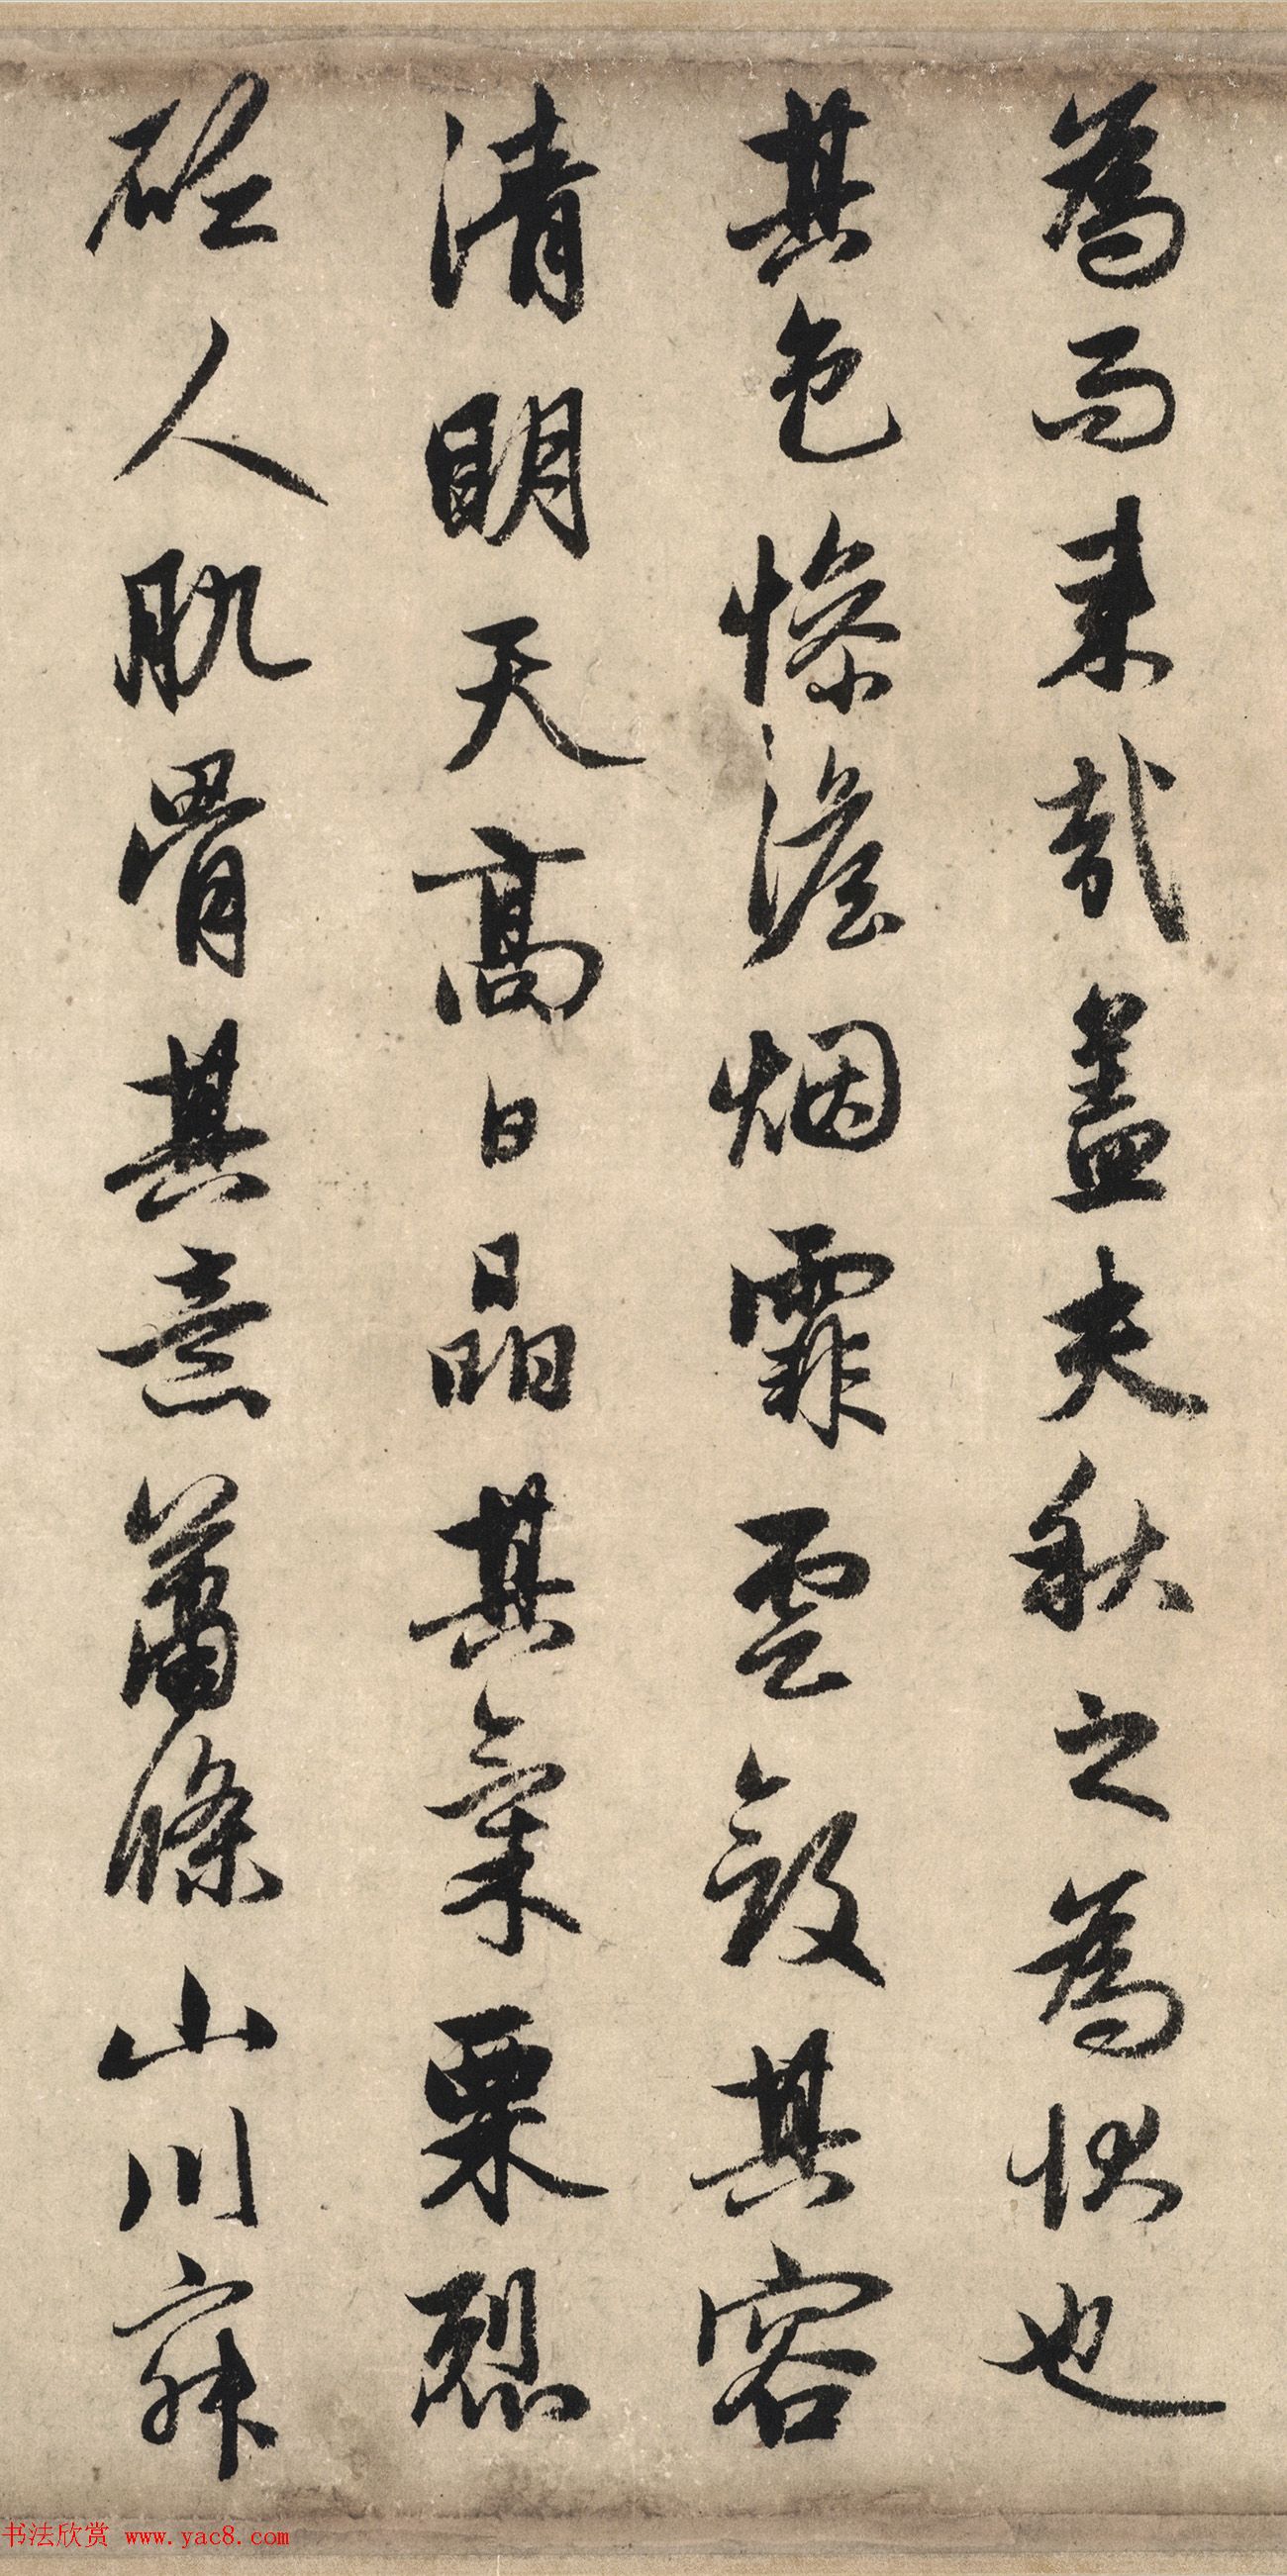 為而來哉蓋夫秋之為狀也
其色慘澹烟霏雲斂其容
清明天高日晶其氣栗烈
砭人肌骨其意蕭條山川寂
书法欣赏 www.yac8.com